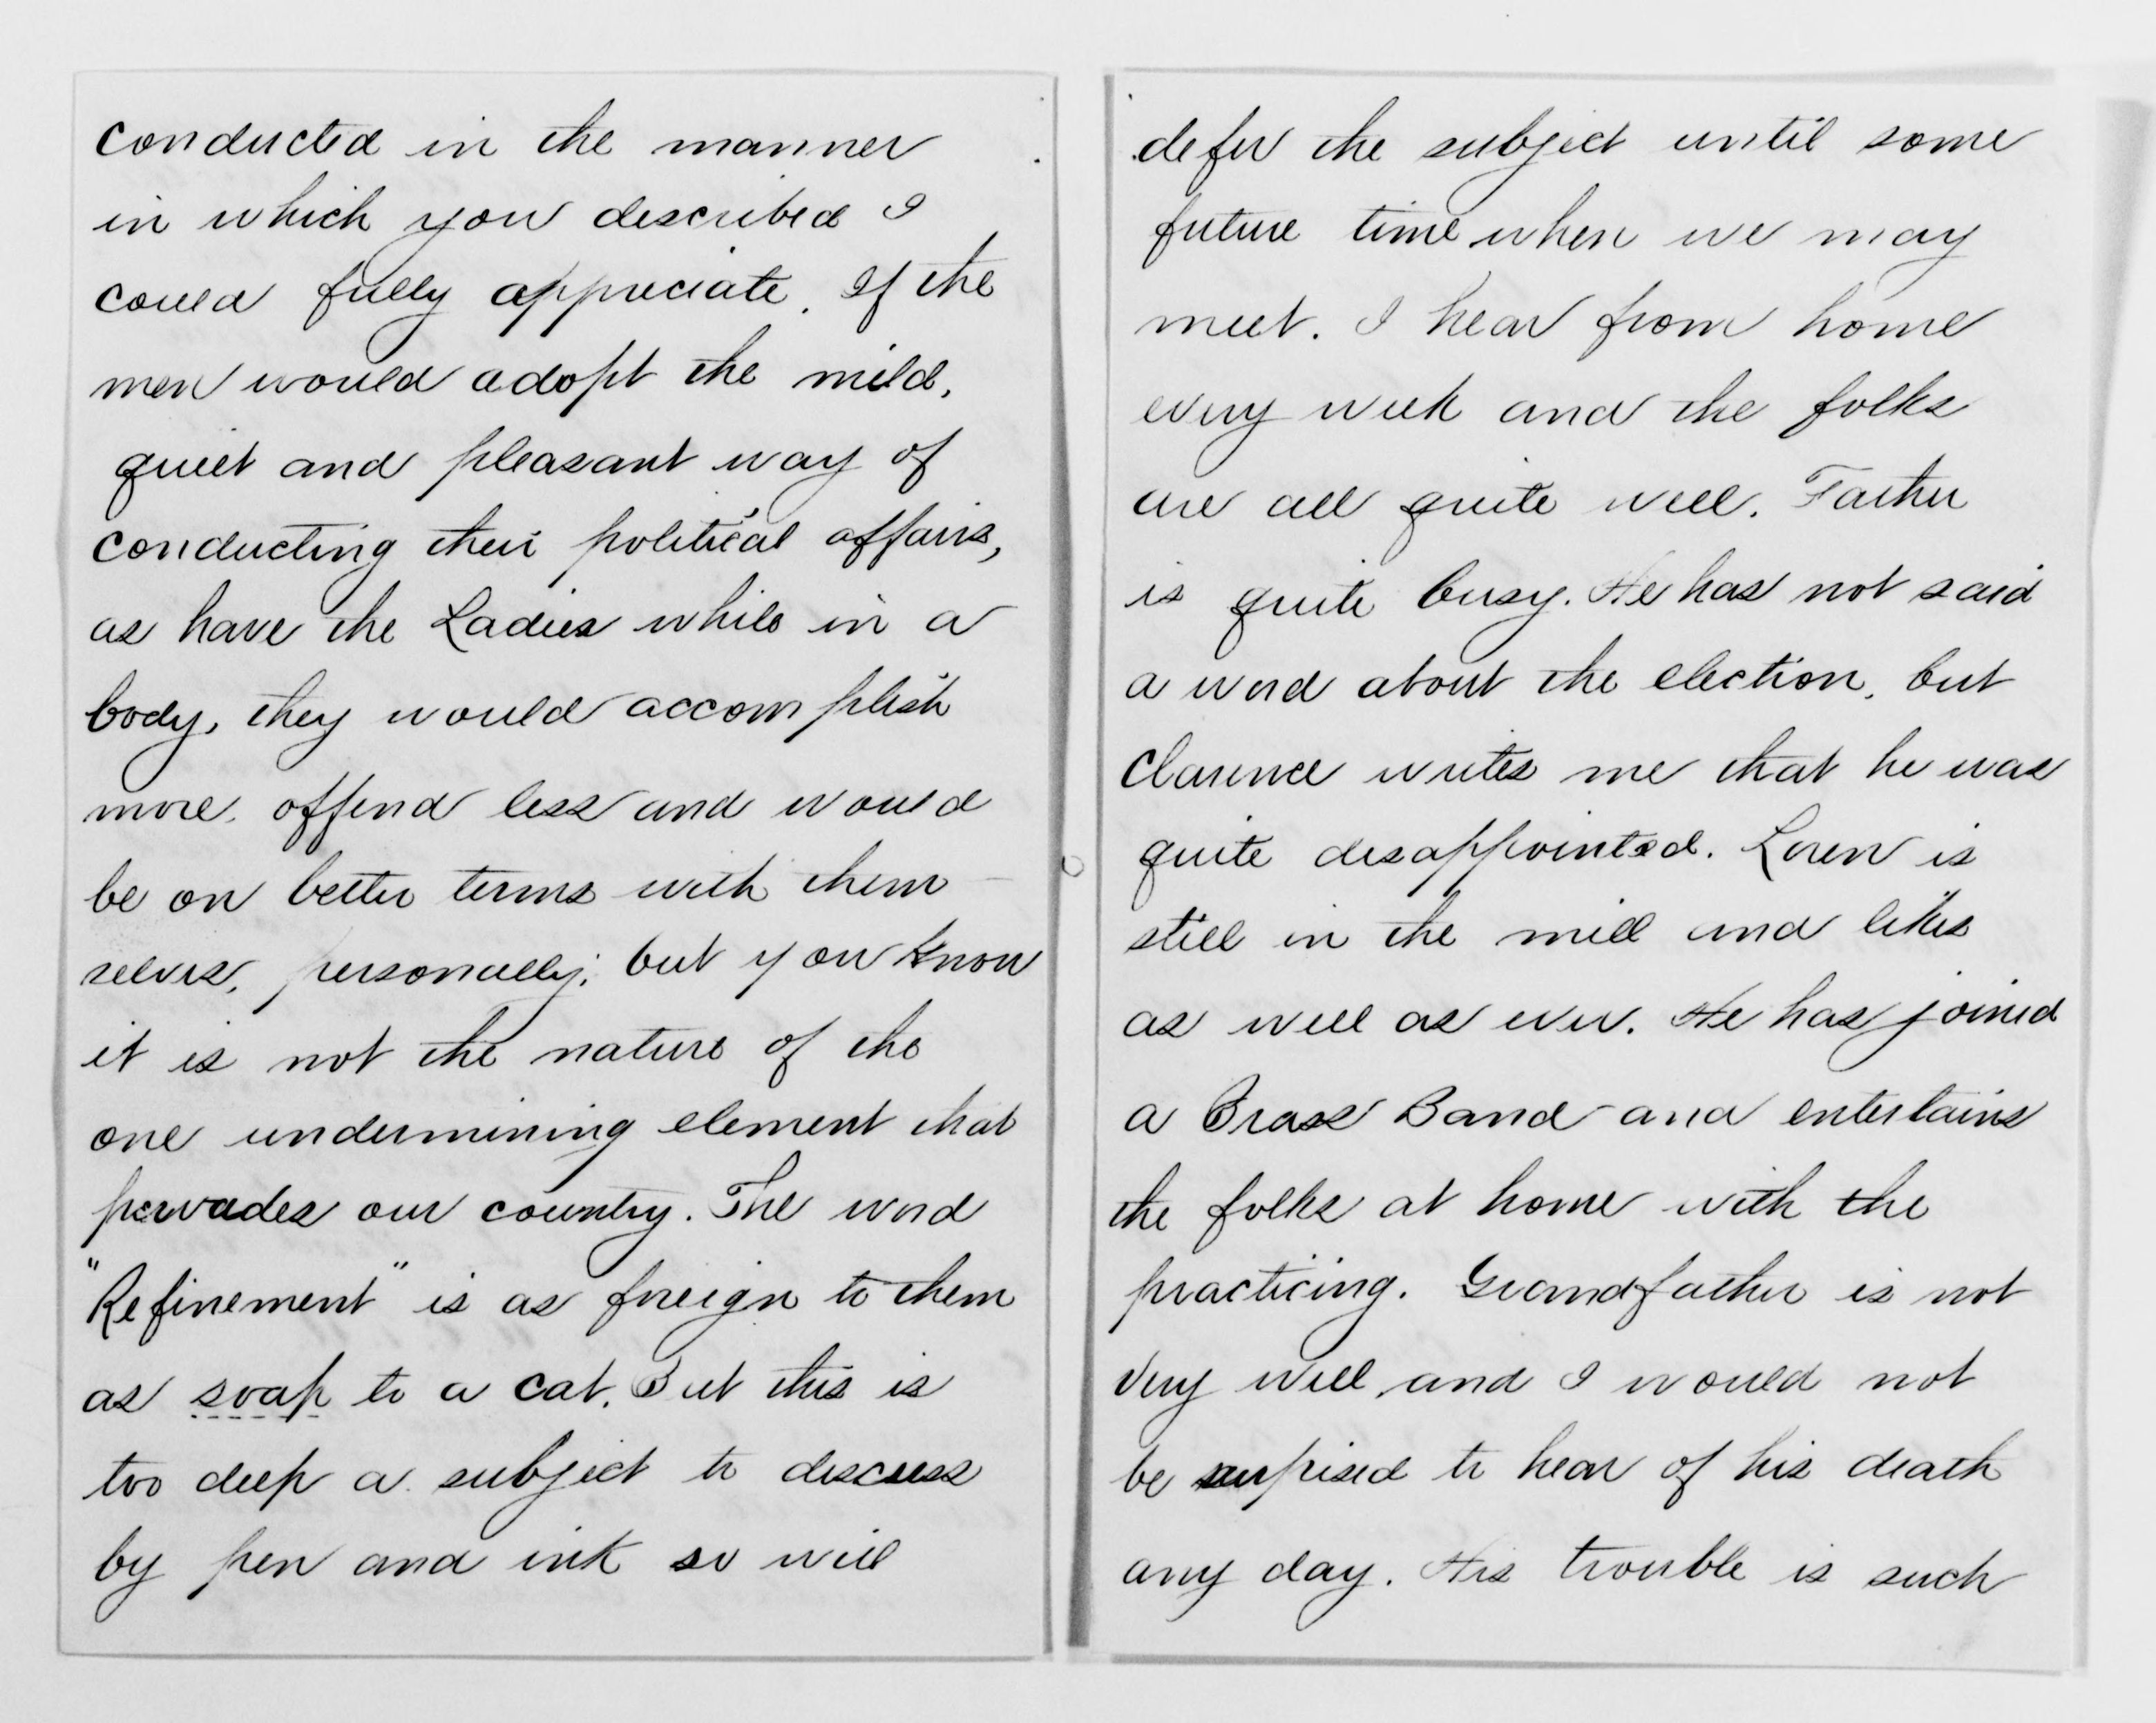 conducted in the manner
in which you described I
could fully appreciate. If the
men would adopt the mild,
quiet and pleasant way of
conducting their political affairs,
as have the Ladies while in a
body, they would accomplish
more, offend less and would
be on better terms with them
selves, personally; but you know
it is not the nature of the
one undermining element that
pervades our country. The word
"Refinement" is as foreign to them
as soap to a cat. But this is
too deep a subject to discuss
by pen and ink so will
defer the subject until some
future time when we may
meet. I hear from home
every week and the folks
are all quite well. Father
is quite busy. He has not said
a word about the election, but
Clarence writes me that he was
quite disappointed. Loren is
still in the mill and likes
as well as ever. He has joined
a Brass Band and entertains
the folks at home with the
practicing. Grandfather is not
very well, and I would not
be surprised to hear of his death
any day. His trouble is such